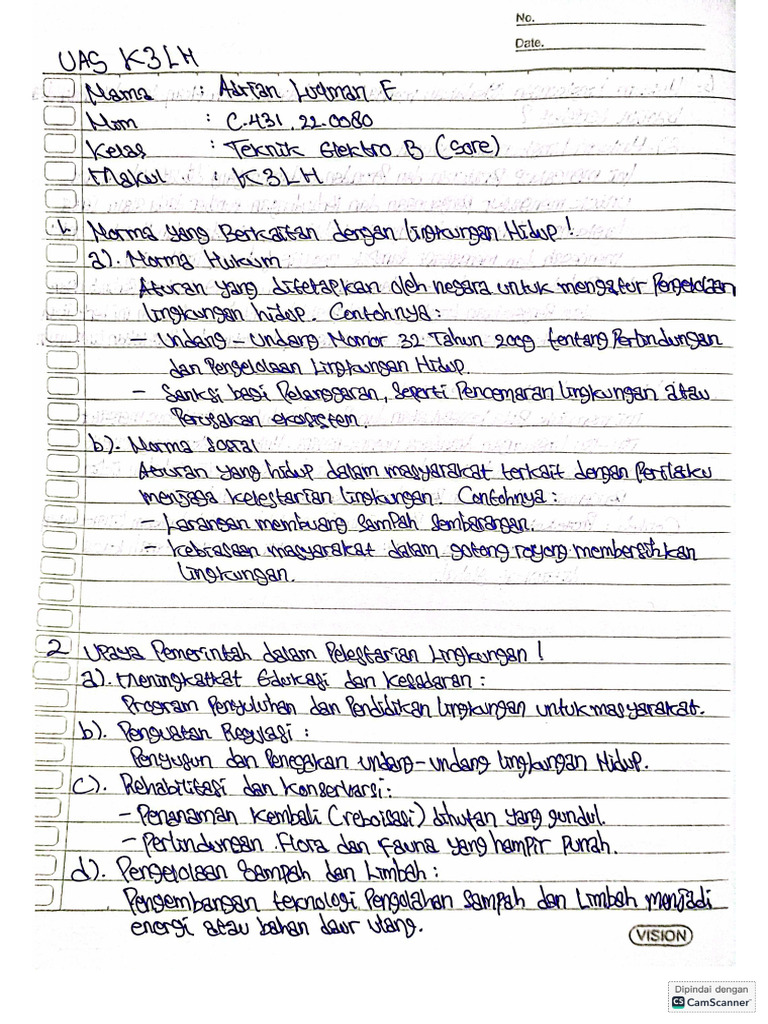 No.
Date.
UAS K3LH
Nama : Adrian Luqman F
Nim : C.431.22.0080
Kelas : Teknik Elektro B (Sore)
Makul : K3LH
1. Norma yang Berkaitan dengan lingkungan Hidup!
a). Norma Hukum
Aturan yang ditetapkan oleh negara untuk mengatur Pengelolaan
lingkungan hidup. Contohnya :
- Undang - Undang Nomor 32 Tahun 2009 tentang Perlindungan
dan Pengelolaan Lingkungan Hidup.
- Sanksi bagi Pelanggaran, seperti Pencemaran lingkungan atau
Perusakan ekosistem.
b). Norma Sosial
Aturan yang hidup dalam masyarakat terkait dengan Perilaku
menjaga kelestarian lingkungan. Contohnya :
- Larangan membuang sampah sembarangan.
- Kebiasaan masyarakat dalam gotong royong membersihkan
lingkungan.
2 Upaya Pemerintah dalam Pelestarian Lingkungan!
a). Meningkatkat Edukasi dan Kesadaran :
Program Penyuluhan dan Pendidikan lingkungan untuk masyarakat.
b). Penguatan Regulasi :
Penyusun dan Penegakan undang-undang lingkungan Hidup.
c). Rehabilitasi dan Konservarsi :
- Penanaman Kembali (reboisasi) dihutan yang gundul.
- Perlindungan Flora dan Fauna yang hampir Punah.
d). Pengelolaan Sampah dan Limbah :
Pengembangan teknologi Pengolahan Sampah dan Limbah menjadi
energi atau bahan daur ulang.
VISION
Dipindai dengan
CS CamScanner